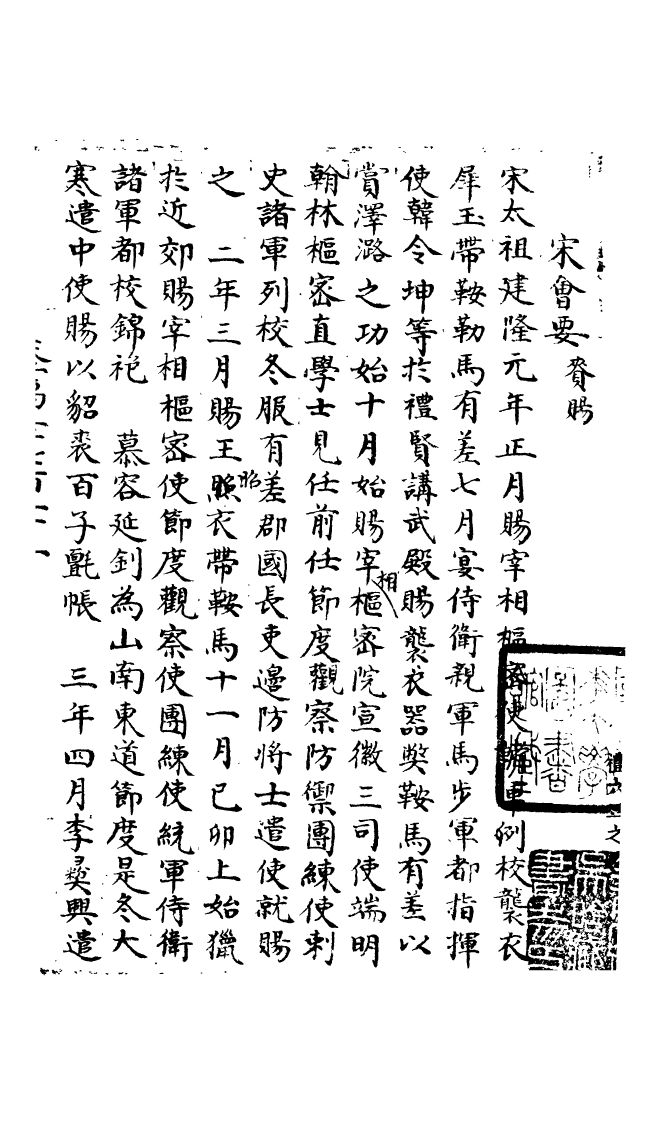 宋會要 賚賜
宋太祖建隆元年正月賜宰相樞密使諸軍列校襲衣
犀玉帶鞍勒馬有差七月宴侍衛親軍馬步軍都指揮
使韓令坤等於禮賢講武殿賜襲衣器獘鞍馬有差以
賞澤潞之功始十月始賜宰相樞密院宣徽三司使端明
翰林樞密直學士見任前任節度觀察防禦團練使刺
史諸軍列校冬服有差郡國長吏邊防將士遣使就賜
之 二年三月賜王照昭衣帶鞍馬十一月已卯上始獵
於近郊賜宰相樞密使節度觀察使團練使統軍侍衛
諸軍都校錦袍 慕容延釗為山南東道節度是冬大
寒遣中使賜以貂裘百子氈帳 三年四月李彝興遣